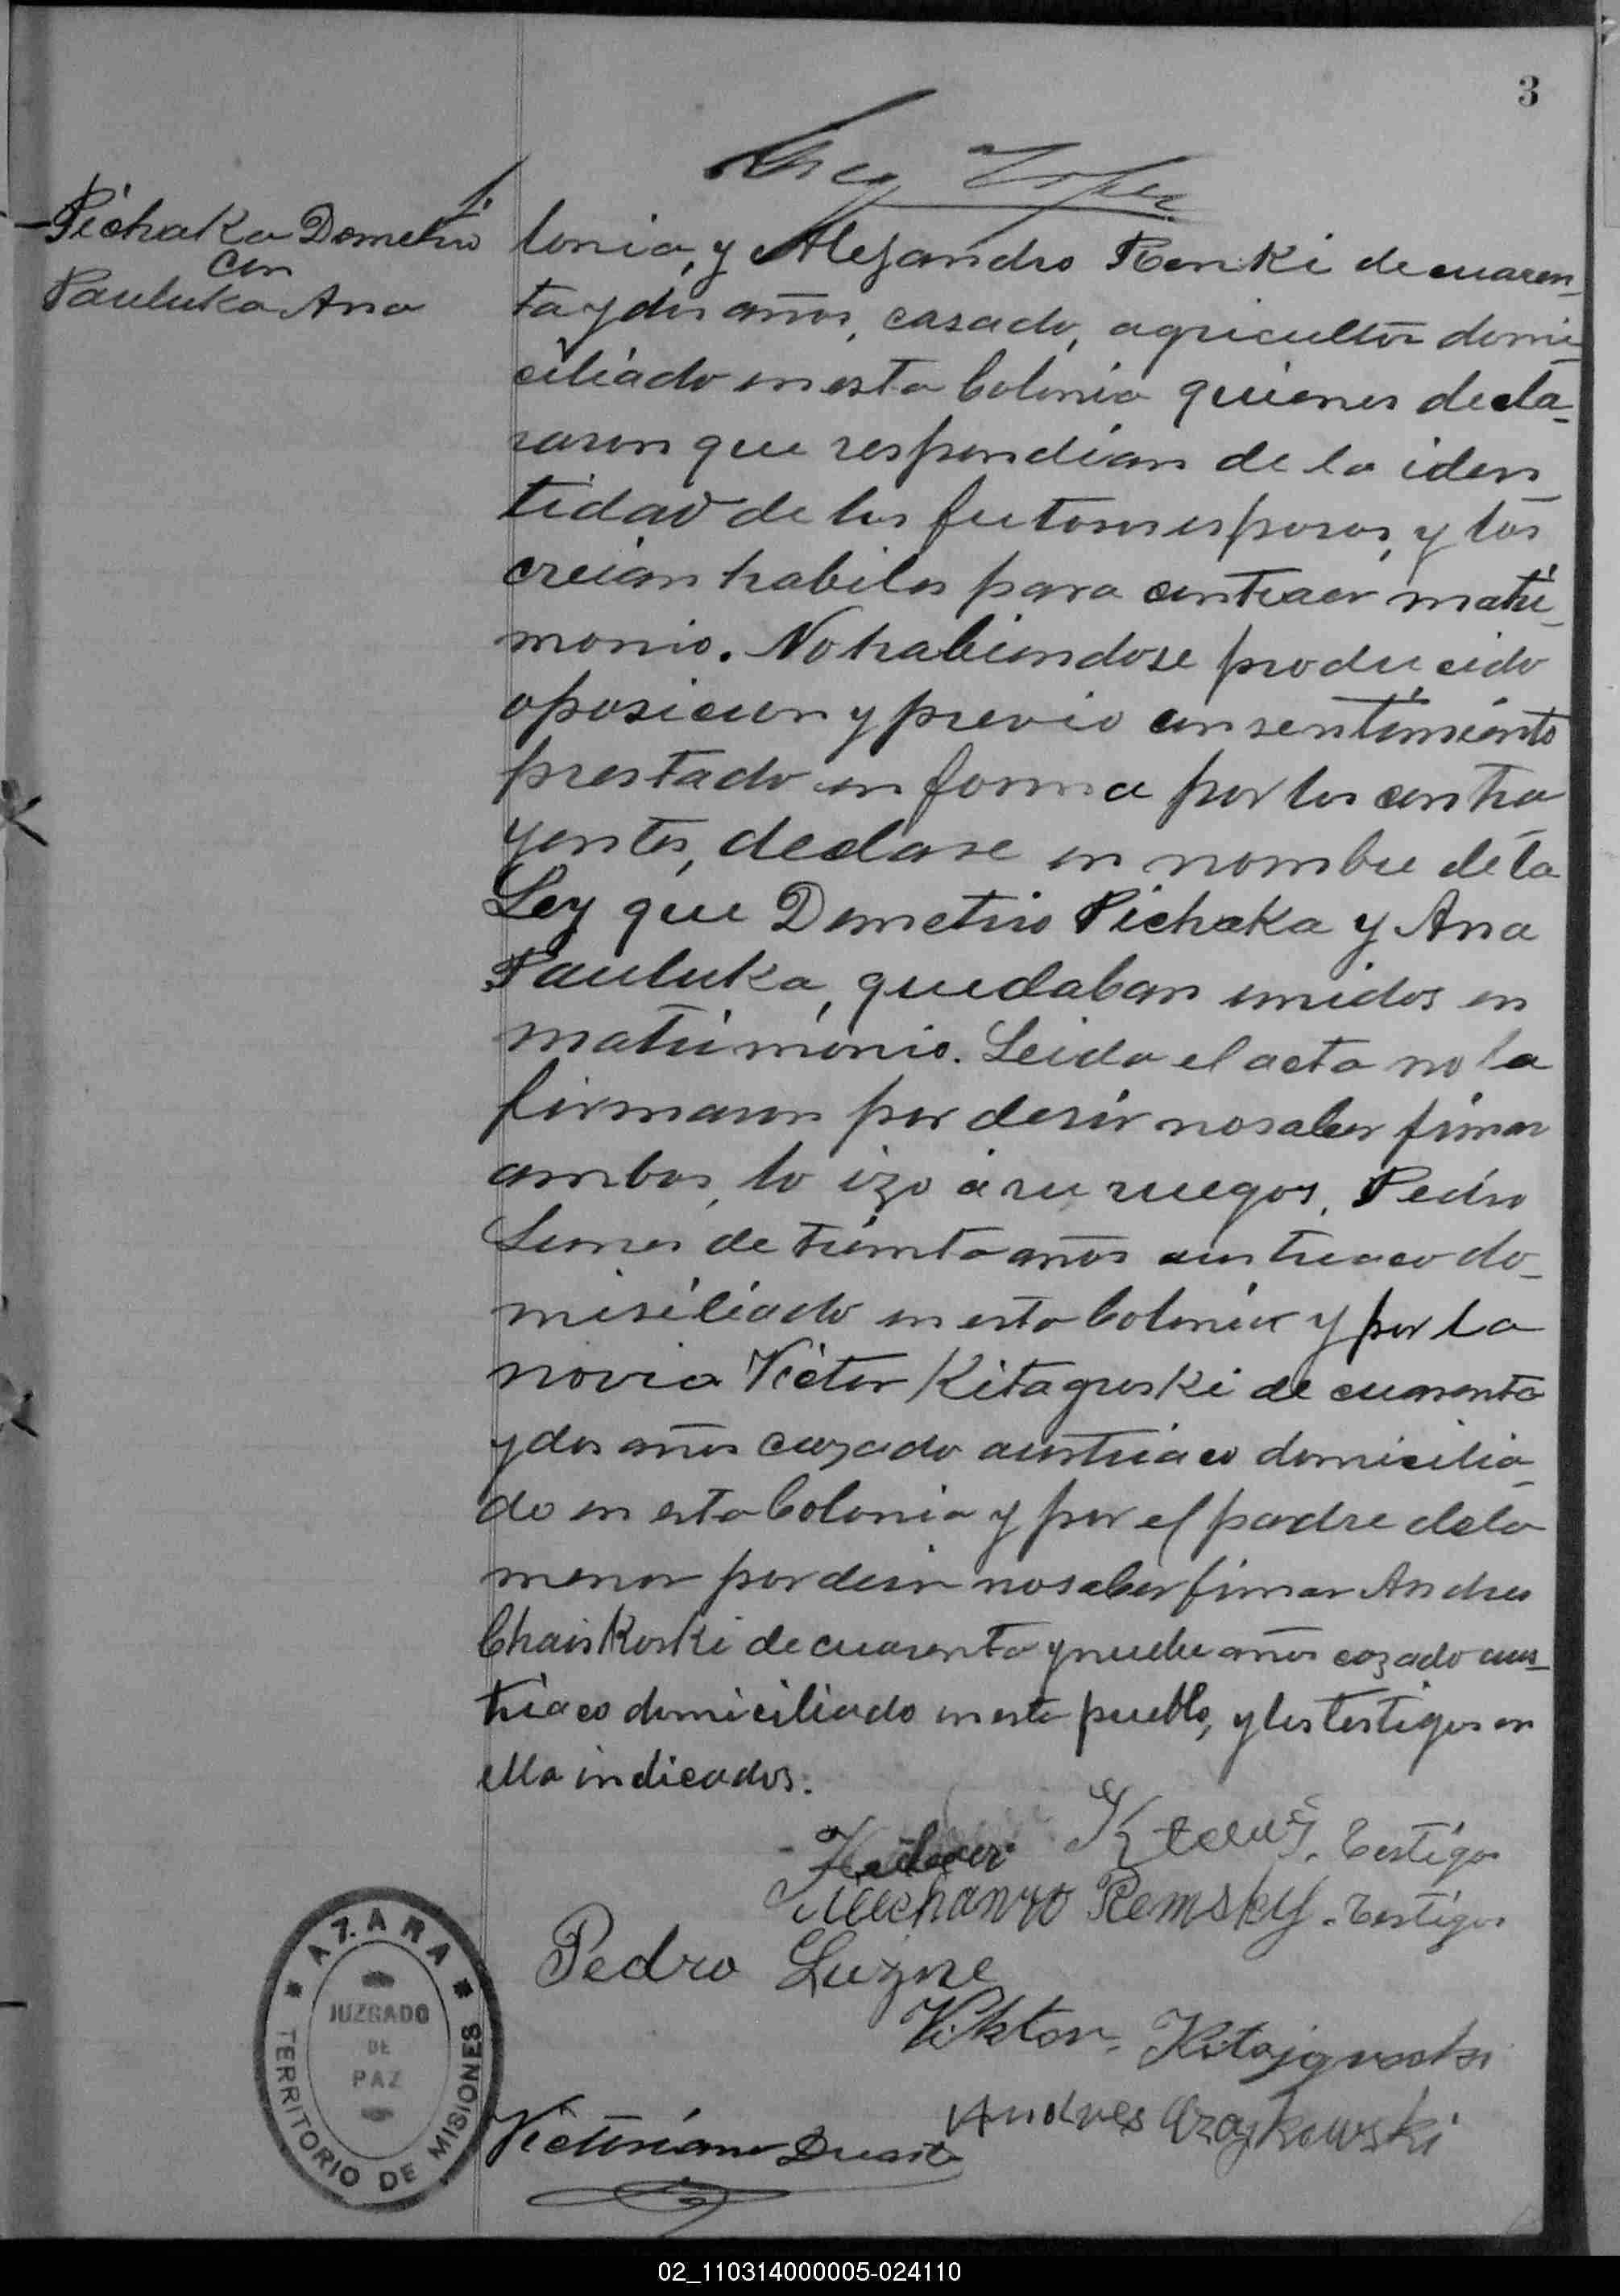 3
1.
Pichaka Demetrio
con
Pauluka Ana
lonia, y Alejandro Renki de cuaren_
ta y dos años, casado, agricultor domi_
ciliado en esta Colonia quienes decla_
raron que respondian de la iden_
tidad de los futoros esposos, y los
creian habiles para contraer matri_
monio. No habiendose producido
oposicion y previo consentimiento
prestado en forma por los contra
yentes, declare en nombre de la
Ley que Demetrio Pichaka y Ana
Pauluka, quedaban unidos en
matrimonio. Leida el acta no la
firmaron por desir no saber firmar
ambos, lo izo á su ruegos, Pedro
de treinta años austriaco do_
misiliado en esta Colonia y por la
novia Victor Kitagroski de cuarenta
y dos años cazado austriaco domicilia_
do en esta Colonia y por el padre de la
menor por desir no saber firmar Andres
Chaiskoski de cuarenta y nuebe años cazado aus_
triaco domiciliado en este pueblo, y los testigos en
ella indicados.
Testigo
Remsky. Testigo
Pedro Luzne
Viktor. Kitajgrodski
Andres Czajkowski
Victoriano Duarte
* AZARA *
JUZGADO
DE
PAZ
TERRITORIO DE MISIONES
02_110314000005-024110